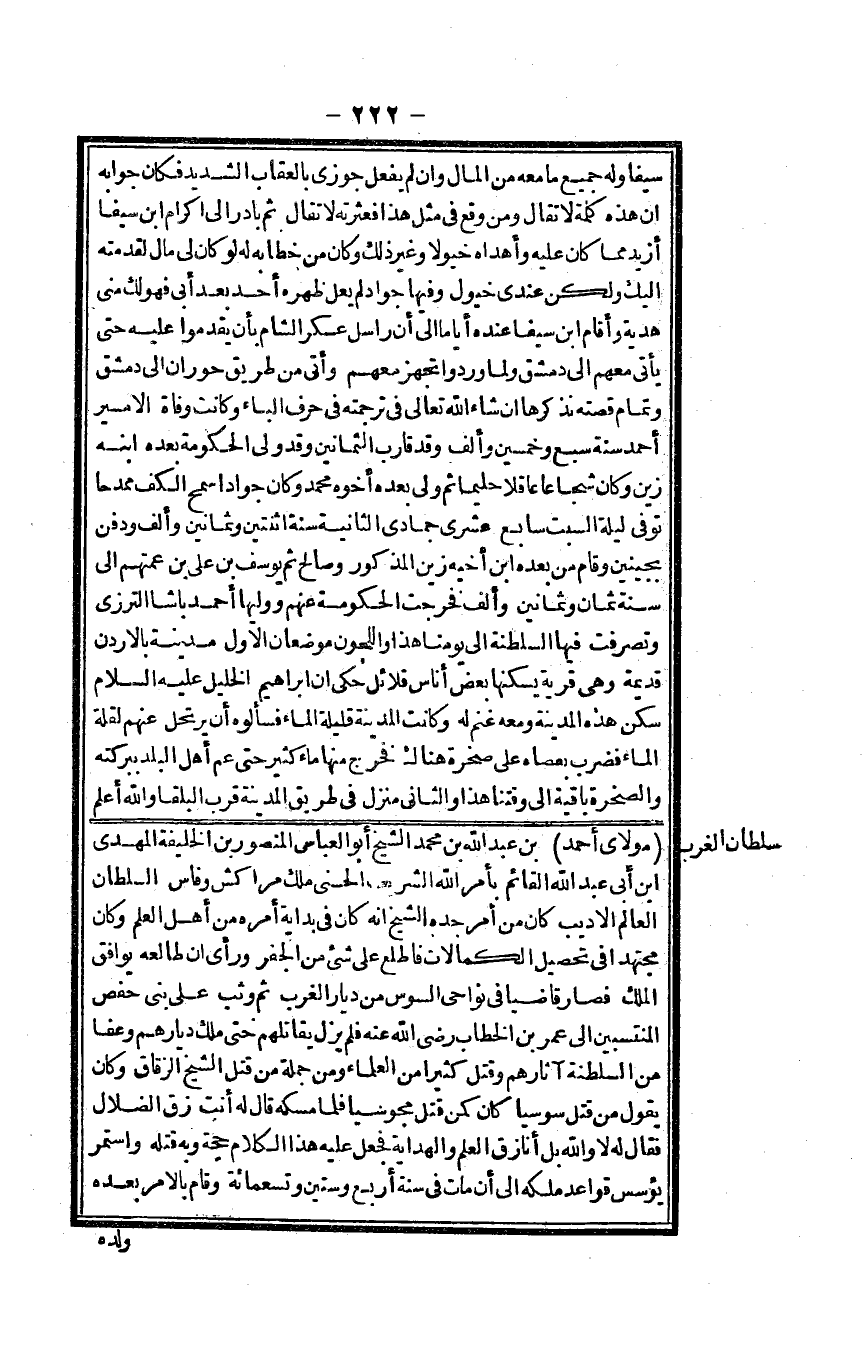 - ٢٢٢ -
سيفا وله جميع ما معه من المال وان لم يفعل جوزى بالعقاب الشديد فكان جوابه
ان هذه كلمة لا تقال ومن وقع فى مثل هذا فعثرته لا تقال ثم بادر الى اكرام ابن سيفا
أزيد مما كان عليه وأهداه خيولا وغير ذلك وكان من خطابه له لو كان لى مال لقدمته
اليك ولكن عندى خيول وفيها جواد لم يعل ظهره أحد بعد أبى فهو لك منى
هدية وأقام ابن سيفا عنده أياما الى أن راسل عسكر الشام بأن يقدموا عليه حتى
يأتى معهم الى دمشق ولما وردوا تجهز معهم وأتى من طريق حوران الى دمشق
وتمام قصته نذكرها ان شاء الله تعالى فى ترجمته فى حرف الباء وكانت وفاة الامير
أحمد سنة سبع وخمسين وألف وقد قارب الثمانين وقد ولى الحكومة بعده ابنه
زين وكان شجاعا عاقلا حليما ثم ولى بعده أخوه محمد وكان جوادا سمح الكف ممدحا
توفى ليلة السبت سابع عشرى جمادى الثانية سنة اثنتين وثمانين وألف ودفن
بجينين وقام من بعده ابن أخيه زين المذكور وصالح ثم يوسف بن على بن عمتهم الى
سنة ثمان وثمانين وألف فخرجت الحكومة عنهم ووليها أحمد باشا الترزى
وتصرفت فيها السلطنة الى يومنا هذا واللجون موضعان الاول مدينة بالاردن
قديمة وهى قرية يسكنها بعض أناس قلائل حكى ان ابراهيم الخليل عليه السلام
سكن هذه المدينة ومعه غنم له وكانت المدينة قليلة الماء فسألوه أن يرتحل عنهم لقلة
الماء فضرب بعصاه على صخرة هناك فخرج منها ماء كثير حتى عم أهل البلد ببركته
والصخرة باقية الى وقتنا هذا والثانى منزل فى طريق المدينة قرب البلقا والله أعلم
سلطان الغرب
(مولاى أحمد) بن عبد الله بن محمد الشيخ أبو العباس المنصور بن الخليفة المهدى
ابن أبى عبد الله القائم بأمر الله الشريف الحسنى ملك مراكش وفاس السلطان
العالم الاديب كان من أمر جده الشيخ انه كان فى بداية أمره من أهل العلم وكان
مجتهدا فى تحصيل الكمالات فاطلع على شئ من الجفر ورأى ان طالعه يوافق
الملك فصار قاضيا فى نواحى السوس من ديار الغرب ثم وثب على بنى حفص
المنتسبين الى عمر بن الخطاب رضى الله عنه فلم يزل يقاتلهم حتى ملك ديارهم وعفا
من السلطنة آثارهم وقتل كثيرا من العلماء ومن جملة من قتل الشيخ الزقاق وكان
يقول من قتل سوسيا كان كمن قتل مجوسيا فلما مسكه قال له أنت زق الضلال
فقال له لا والله بل أنا زق العلم والهداية فجعل عليه هذا الكلام حجة وبه قتله واستمر
يؤسس قواعد ملكه الى أن مات فى سنة أربع وستين وتسعمائة وقام بالامر بعده
ولده